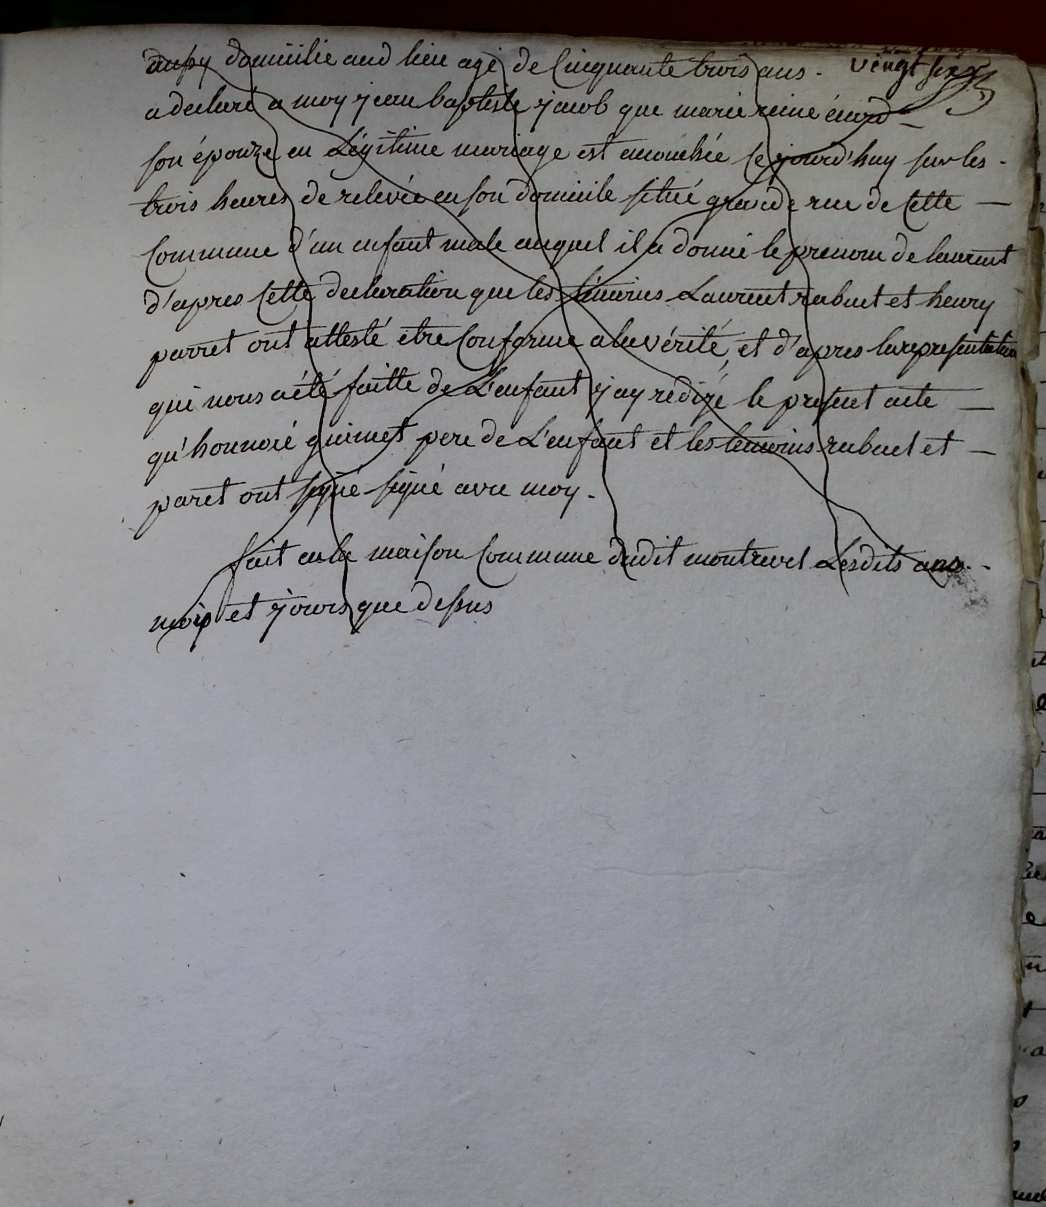 vingt six
aussy domicilié aud lieu agé de Cinquante trois ans.
a declaré a moy jean baptiste jacob que marie reine
son épouze en Légitime mariage est acouchée Ce jourd'huy sur les
trois heures de relevée en son domicile situé grande rue de Cette
Commune d'un enfant male auquel il a donné le prenom de laurent
d'apres Cette declaration que les témoins Laurent rabuel et henry
parret ont attesté etre Conforme a la vérité, et d'apres la representation
qui nous a été faitte de L'enfant j'ay rédizé le present acte
qu'honnoré guimet pere de L'enfant et les temoins rabuel et
paret ont signé signé avec moy.
fait en la maison Commune dudit montrevel Lesdits ans
mois et jours que dessus